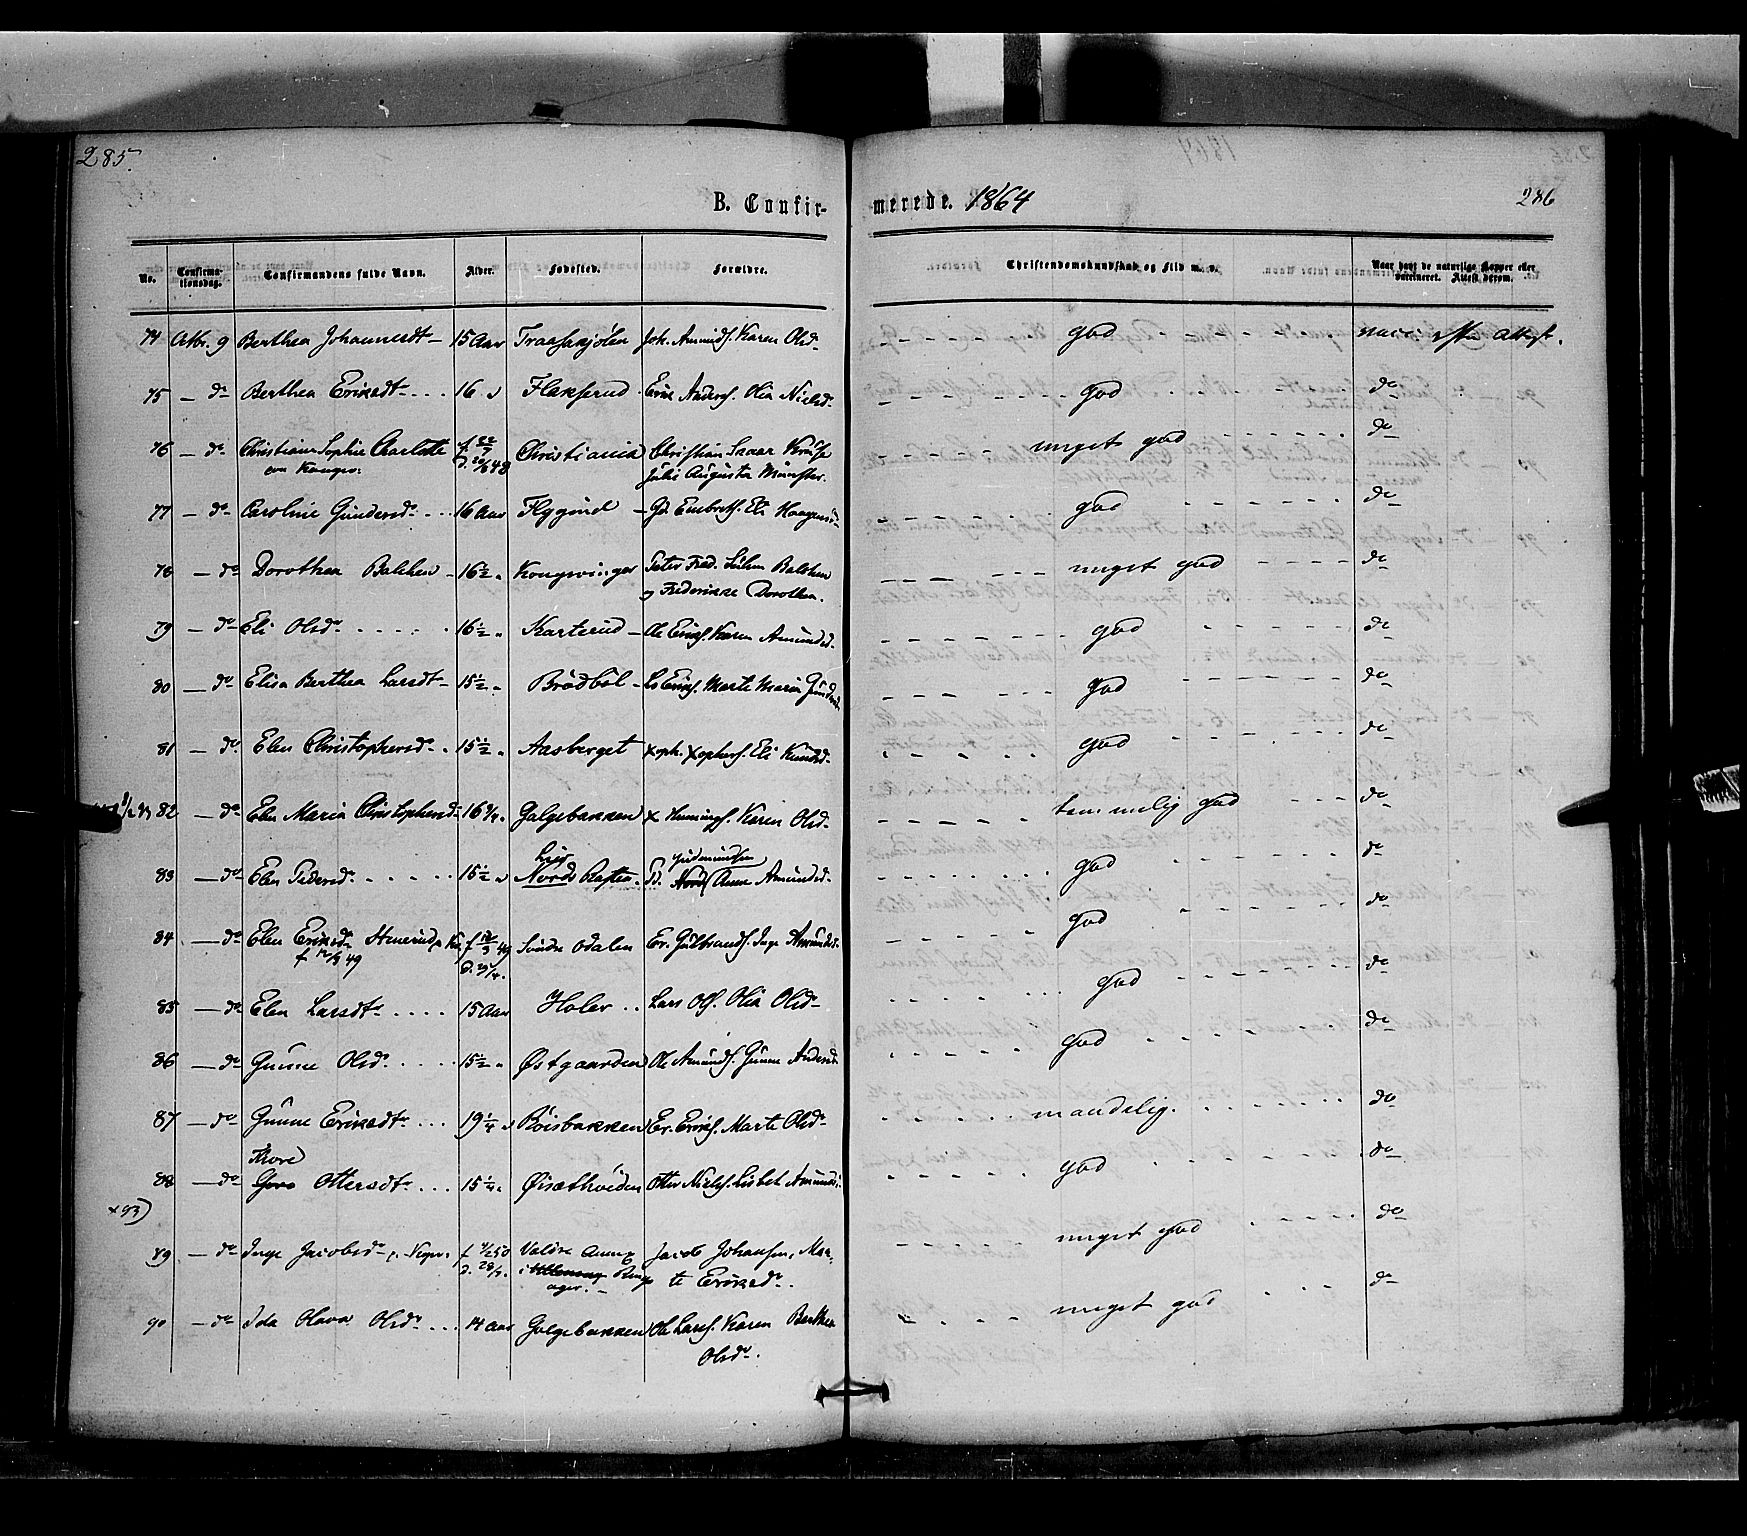 285.
B. Confir- merede. 1864
286
No. Confirma-tionsdag. Confirmandens fulde Navn. Alder. Fødested. Forældre. Christendomskundskab og Flid m. v. Naar havt de naturlige Kopper eller vaccineret. Attest derom.
74 Octbr. 9 Berthea Johannesdt 15 Aar Traaskjølen Joh. Amunds. Karen Olsd. god vacc: efter Attest.
75 — do Berthea Eriksdt 16 " Flakserud Erik Anders. Olia Nielsd. god do
76 — do Christiane Sophie Charlotte f 22/ 48 Christiania Christian Kruse god do
Julie Augusta Münster.
77 — do Caroline Gundersd. 16 Aar Flygind Gd. Embrets. Eli Haagensd. god do
78 — do Dorothea Balchen 16½ " Kongsvinger Peter Fred. Balchen meget god do
og Frederikke Dorothea.
79 — do Eli Olsd. 16½ " Karterud Ole Eriks. Karen Amundsd. god do
80 — do Elisa Berthea Larsdt 15½ " Brødbøl Ls Eriks. Marte Maria god do
81 — do Elen Christophersd. 15½ " Aasberget Xoph. Xophers. Eli Knudsd. god do
82 — do Elen Maria Christophersd. 16¼ " Galgebakken X Hemings. Karen Olsd. temmelig god do
Gudmundsen
83 — do Elen Pedersd. 15½ " Nord Rasta Pd. Nord Anne Amundsd. god do
84 — do Elen Eriksd. f 12/3 49 Søndre Odalen Er. Gulbrands. Inge Amundsd. god do
f 12/3 49
85 — do Elen Larsdt. 15 Aar Holer Lars Ols. Olia Olsd. god do
86 — do Gunne Olsd. 15½ " Østgaarden Ole Amunds. Gunne Andersd. god do
87 — do Gunne Eriksdt. 19¼ " Røisbakken Er. Eriks. Marte Olsd. maadelig. do
Thore
88 — do Gore Ottersdt. 15¼ " Øisæthøiden Otter Niels. Lisbet Amundsd. god do
x 93)
89 — do Inge Jacobsd. f 50 Valdre Annex Jacob Johansen, Mar- meget god do
i Ringsager. te Eriksd.
90 — do Ida Olava Olsd. 14 Aar Galgebakken Ole Lars. Karen Berthea meget god do
Olsd.